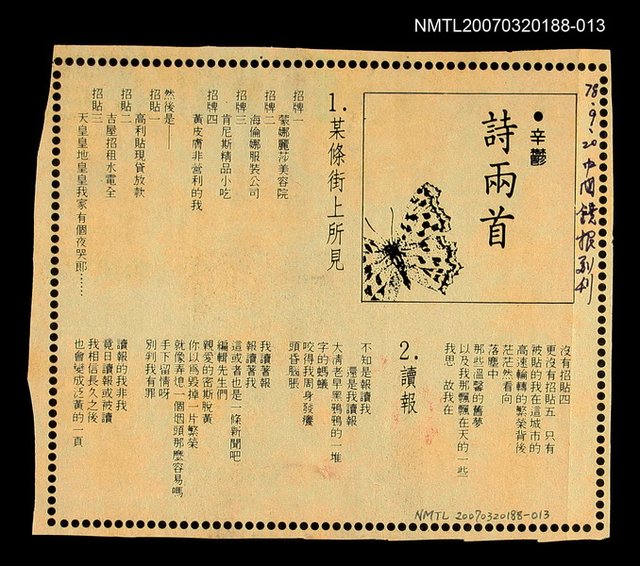 NMTL20070320188-013
78.9.20中國晚報副刊
詩兩首
●辛鬱
1.某條街上所見
招牌一
蒙娜麗莎美容院
招牌二
海倫娜服裝公司
招牌三
肯尼斯精品小吃
招牌四
黃皮膚非營利的我
然後是——
招貼一
高利貼現貸放款
招貼二
吉屋招租水電全
招貼三
天皇皇地皇皇我家有個夜哭郎……
沒有招貼四
更沒有招貼五 只有
被貼的我在這城市的
高速輪轉的繁榮背後
茫茫然看向
落塵中
那些溫馨的舊夢
以及我那飄飄在天的一些
我思 故我在
2.讀報
不知是報讀我
還是我讀報
大清老早黑鴉鴉的一堆
字的螞蟻
咬得我周身發癢
頭昏腦脹
我讀著報
報讀著我
這或者也是一條新聞吧
編輯先生們
親愛的密斯脫黃
你以為毀掉一片繁榮
就像弄熄一個烟頭那麼容易嗎
手下留情呀
別判我有罪
讀報的我非我
竟日讀報或被讀
我相信長久之後
也會變成泛黃的一頁
NMTL 20070320188-013